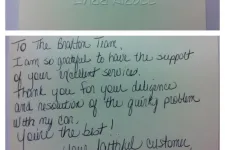 To The Brafton Team,
I am so grateful to have the support
of your excellent services.
Thank you for your diligence
and resolution of the quirky problem
with my car.
You're the best!
your faithful customer